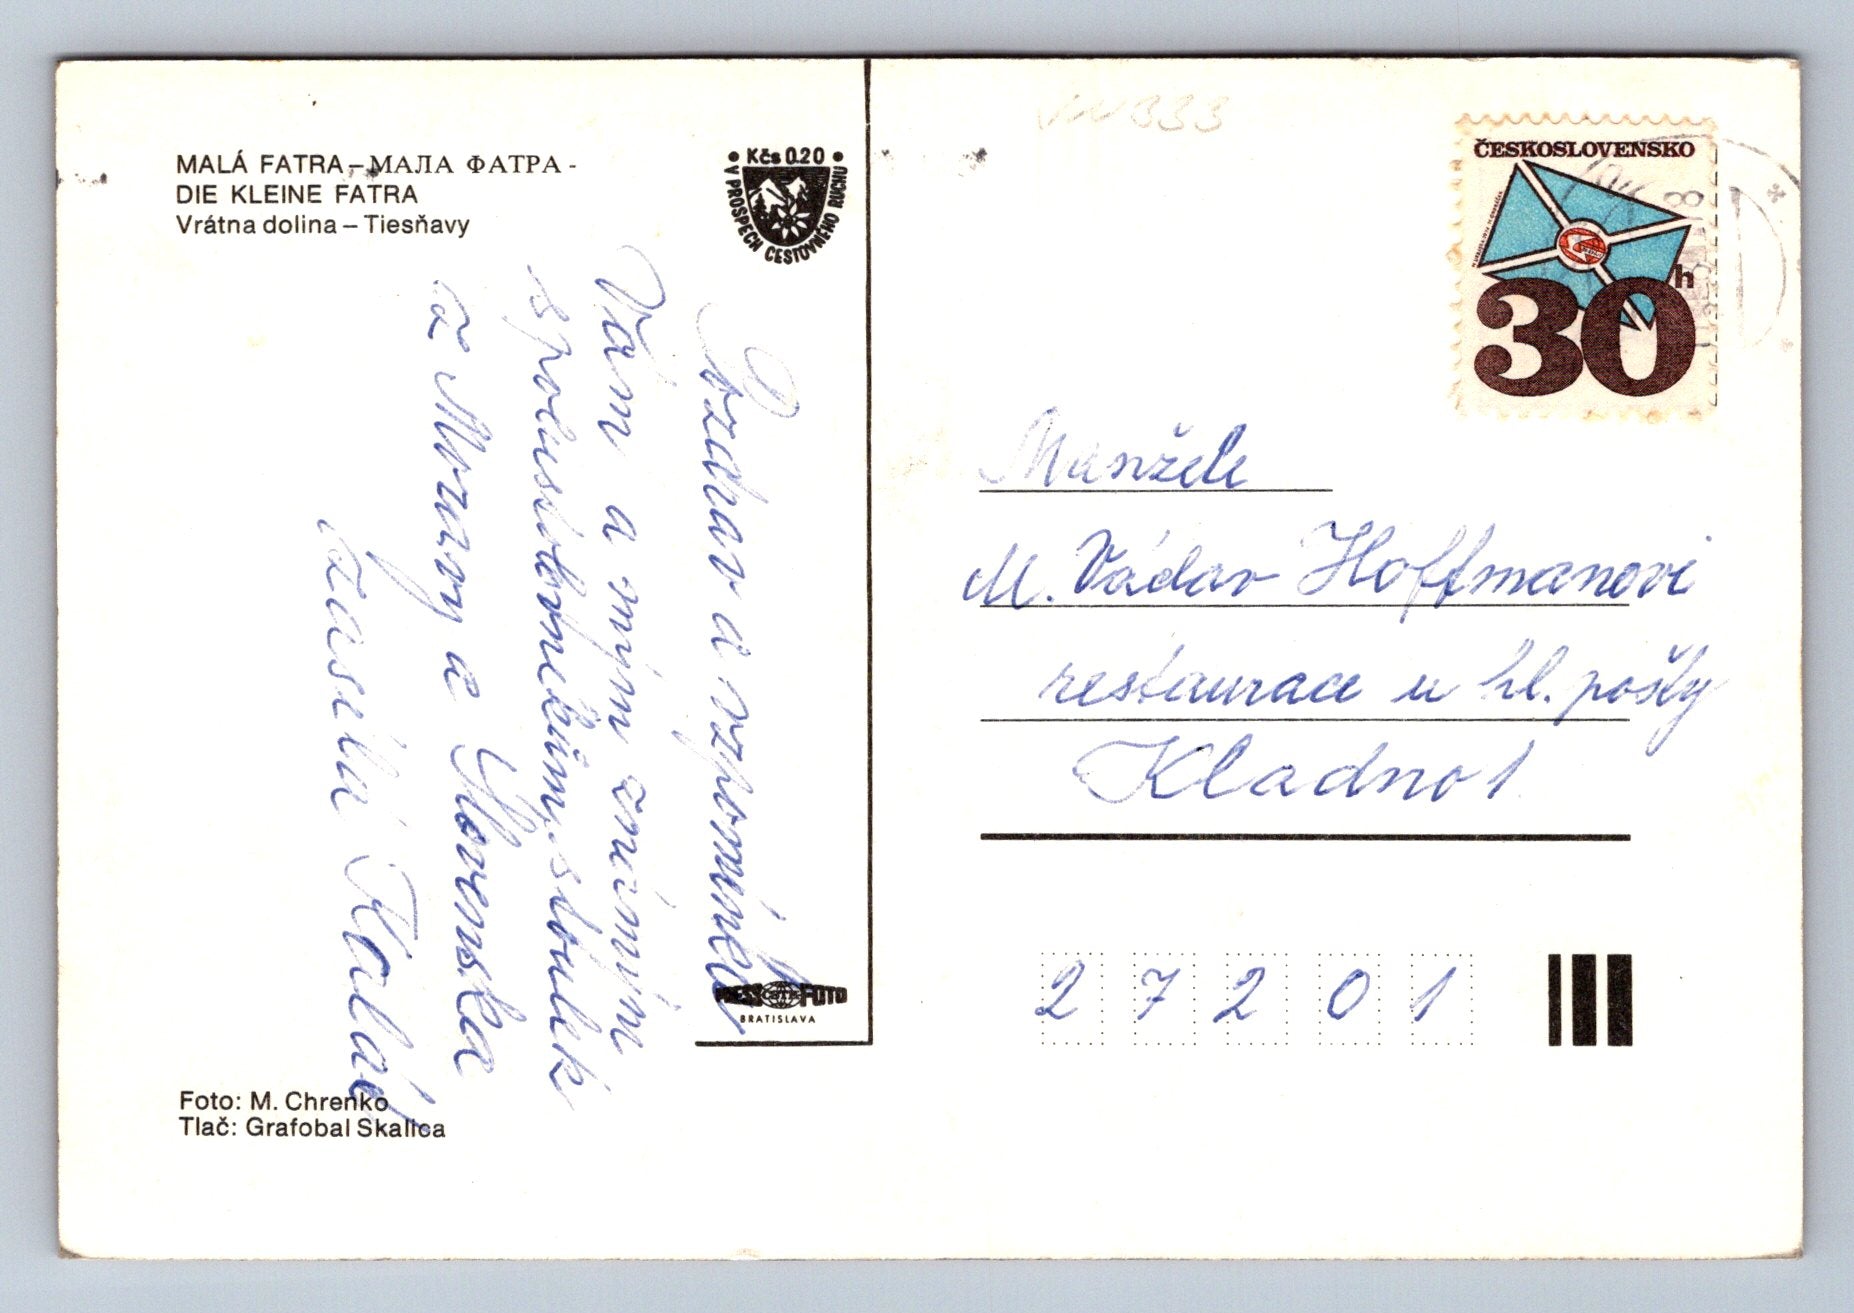 MALÁ FATRA – МАЛА ФАТРА -
DIE KLEINE FATRA
Vrátna dolina – Tiesňavy
• Kčs 0.20 •
V PROSPECH CESTOVNÉHO RUCHU
Pozdrav a vzpomínku
Vám a mým známým
spolustolovníkům, štamk
z Moravy a Slovenska
zasílá
PRESSFOTO
BRATISLAVA
Foto: M. Chrenko
Tlač: Grafobal Skalica
333
ČESKOSLOVENSKO
30 h
Manželé
M. Václav Hoffmanovi
restaurace u hl. pošty
Kladno 1
272 01